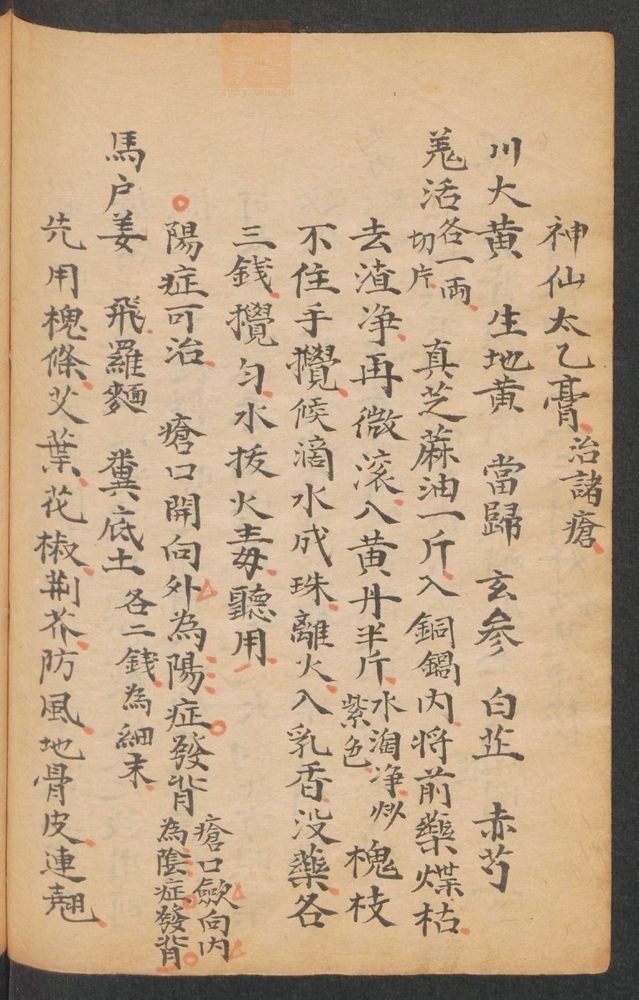 神仙太乙膏治諸瘡
川大黄　生地黄　當歸　玄參　白芷　赤芍
羗活各一両切片　真芝蔴油一斤入銅鍋内将前藥煠枯
去渣净再微滚入黄丹半斤水淘净炒紫色　槐枝
不住手攪候滴水成珠離火入乳香没藥各
三錢攪匀水拔火毒聽用
陽症可治　瘡口開向外為陽症發背瘡口歛向内為陰症發背
馬户姜　飛羅麵　糞底土各二錢為細末
先用槐條艾葉花椒荆芥防風地骨皮連翹